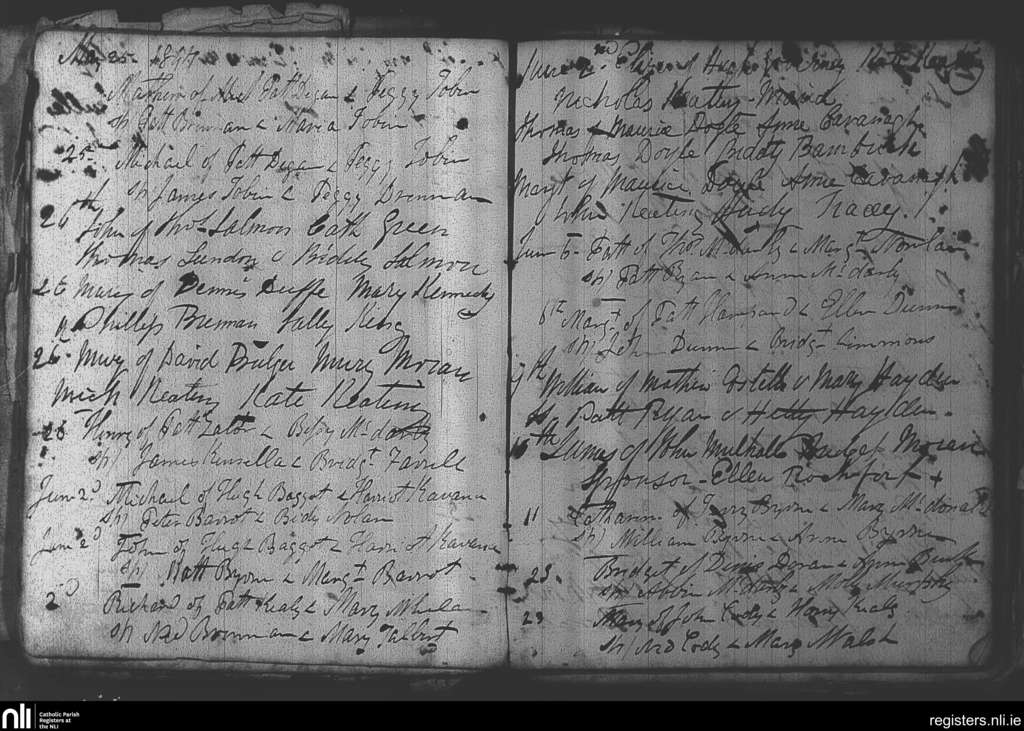 May 25
Mathew of Patt Degan & Peggy Tobin
Sp/ Patt Brennan & Maria Tobin
25 Michael of Patt Degan & Peggy Tobin
Sp/ James Tobin & Peggy Drennan
26th John of Thos Salmon Cath Green
Thomas Lundon & Biddy Salmon
26 Mary of Dennis Duffe Mary Kennedy
Phillip Brennan Sally
26 Mary of David Bulger Mary Moran
Mich Keating Kate Keating
26 Henry of Patt Lalor & Betsy McDarby
Sp/ James Kinsella & Bridgt Farrell
June 2d Michael of Hugh Baggot & Harriot Kavana
Sp/ Peter Barrot & Bidy Nolan
June 2d John of Hugh Baggot & Harriot Kavana
Sp/ Matt Byrne & Margt Barrot
2d Richard of Patt Healy & Mary Whelan
Sp/ Ned Brennan & Mary Talbert
June 2d of Hugh Kate
Nicholas Keating
Thomas Maurice Doyle Anne Cavanagh
Thomas Doyle Biddy Bambrick
Margt of Maurice Doyle Anne Cavanagh
Keating Tracey
June 6 Patt of Thos & Margt Nowlan
Sp/ Patt Ryan & Anne McDarby
6th Margt of Patt & Ellen Dunn
Sp/ John Dunn & Bridgt Cimmons
7th William of Mathew Costello & Mary Hayden
Sp Patt Ryan & Hetty Hayden
10th James of John Mulhall Moran
Sponsor - Ellen Rochfort +
11 Catharine of Terry Byrne & Mary McDonald
Sp/ William Byrne & Anne Byrne
23. Bridget of Denis Doran &
Sp/ & Molly Murphy
23 Mary of John Cody & Honry Healy
Sp/ Ned Cody & Mary Walsh
nli
Catholic Parish
Registers at
the NLI
registers.nli.ie